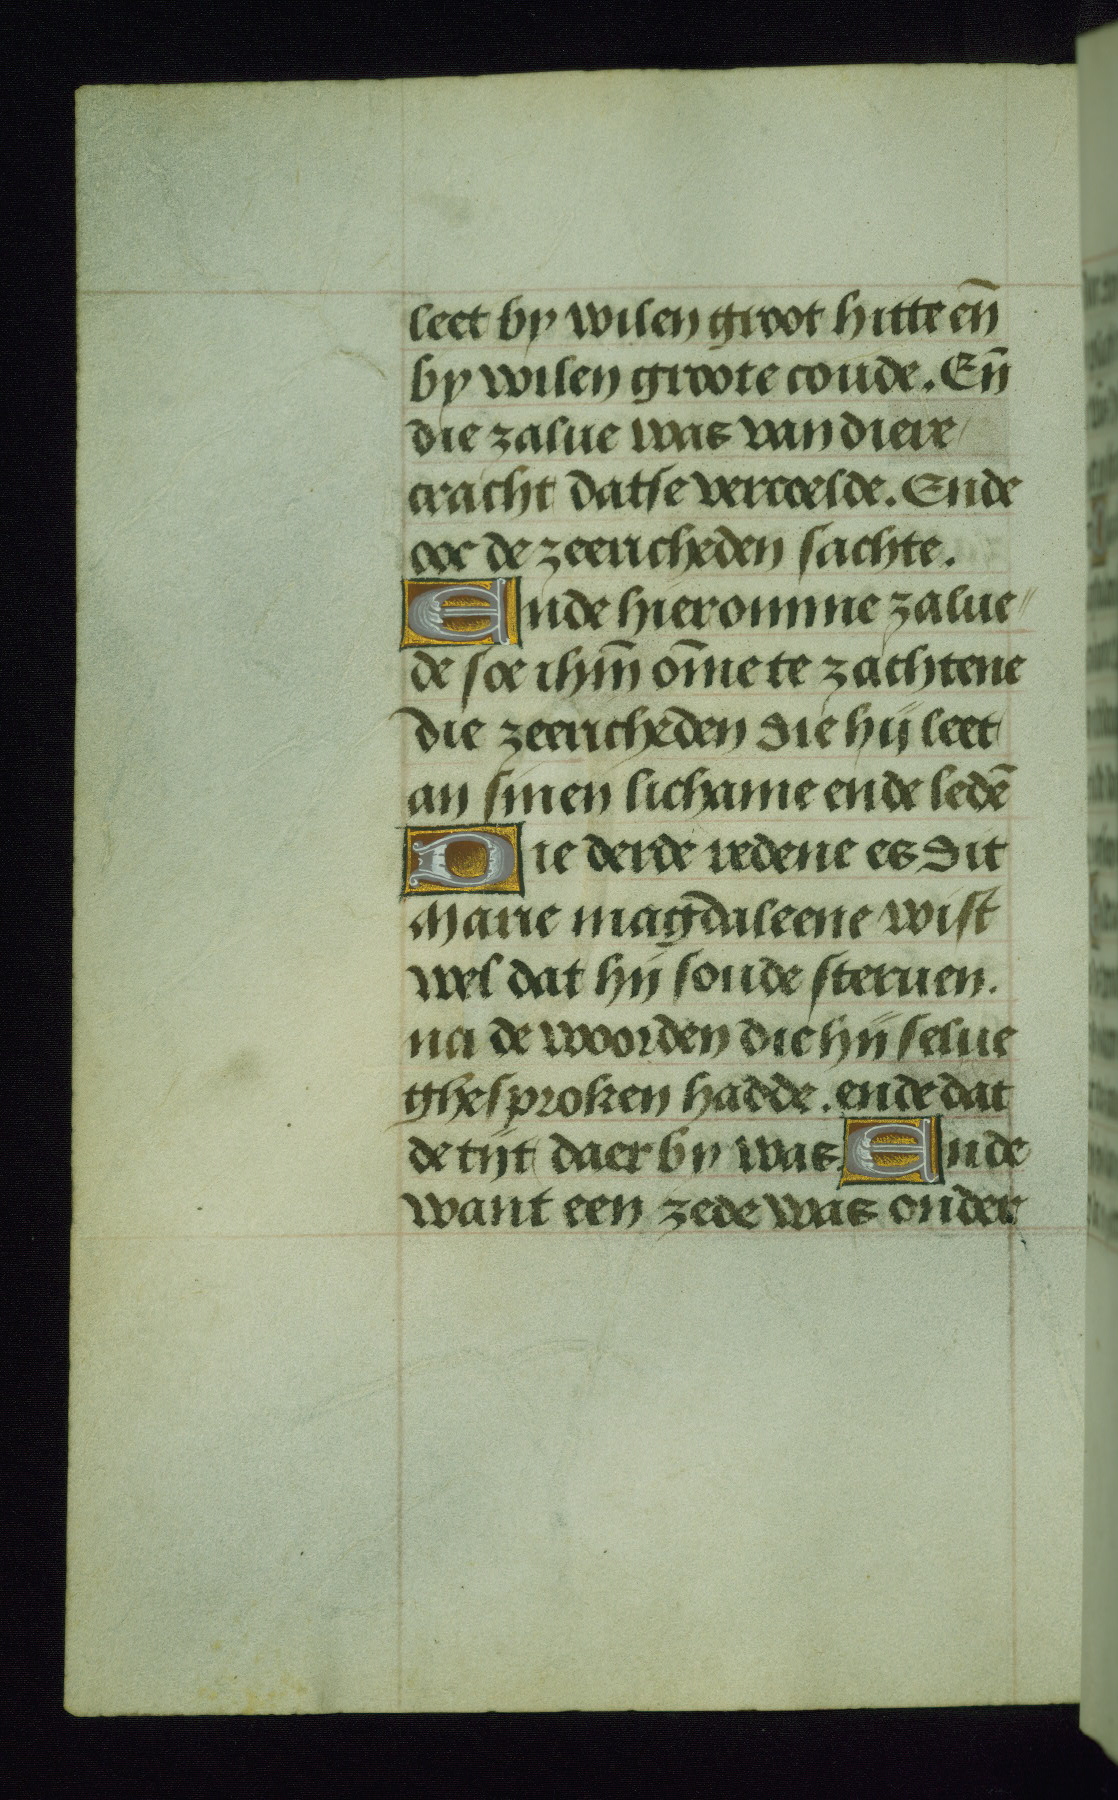 leet by wilen groot hitte en̄
by wilen groote coude. En̄
die zalue was van diere
cracht datse vercoelde. Ende
ooc de zeericheden sachte.
Ende hieromme zalue〃
de soe ihm̄ om̄e te zachtene
die zeericheden die hij leet
an sinen lichame ende ledē
Die derde redene es dit
Marie magdaleene wist
wel dat hij soude steruen.
na de woorden die hij selue
ghesproken hadde. ende dat
de tijt daer by was. Ende
want een zede was onder